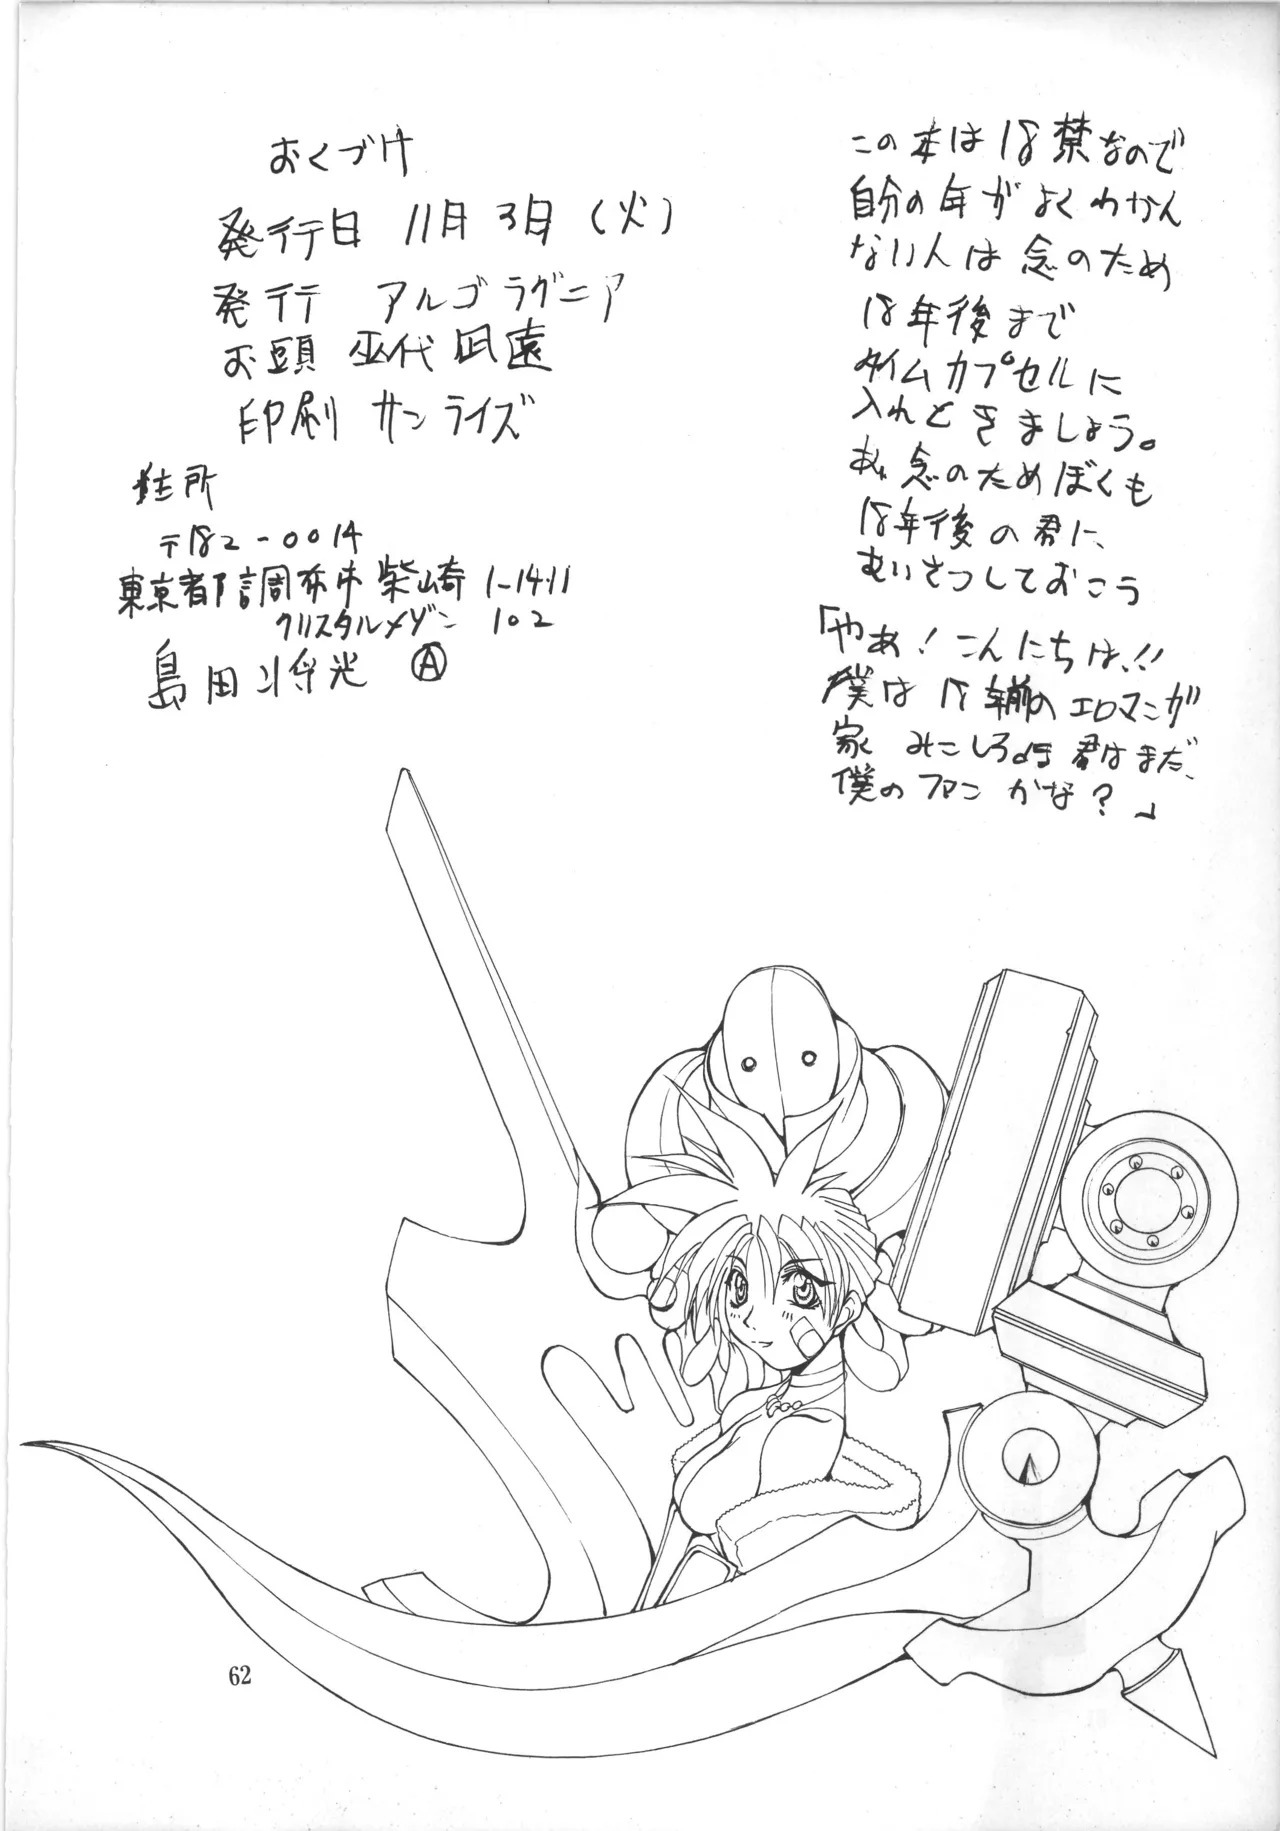 おくづけ
発行日 11月3日(火)
発行 アルゴラグニア
お頭 巫代凪遠
印刷 サンライズ
住所
〒182-0014
東京都調布市柴崎1-14-11
クリスタルメゾン 102
島田将光 Ⓐ
この本は18禁なので
自分の年がよくわかん
ない人は念のため
18年後まで
タイムカプセルに
入れときましょう。
あ、念のためぼくも
18年後の君に、
むいさつしておこう
「やあ!こんにちは!!
僕は18年前のエロマンガ
家 みこしろだよ 君はまだ、
僕のファンかな?」
62